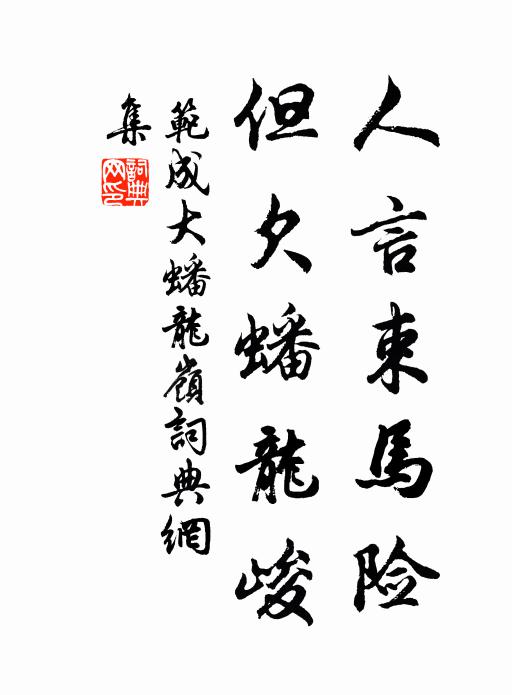 人言束馬险
但欠蟠龍峻
範成大蟠龍嶺詞典網
集
詞典
网印